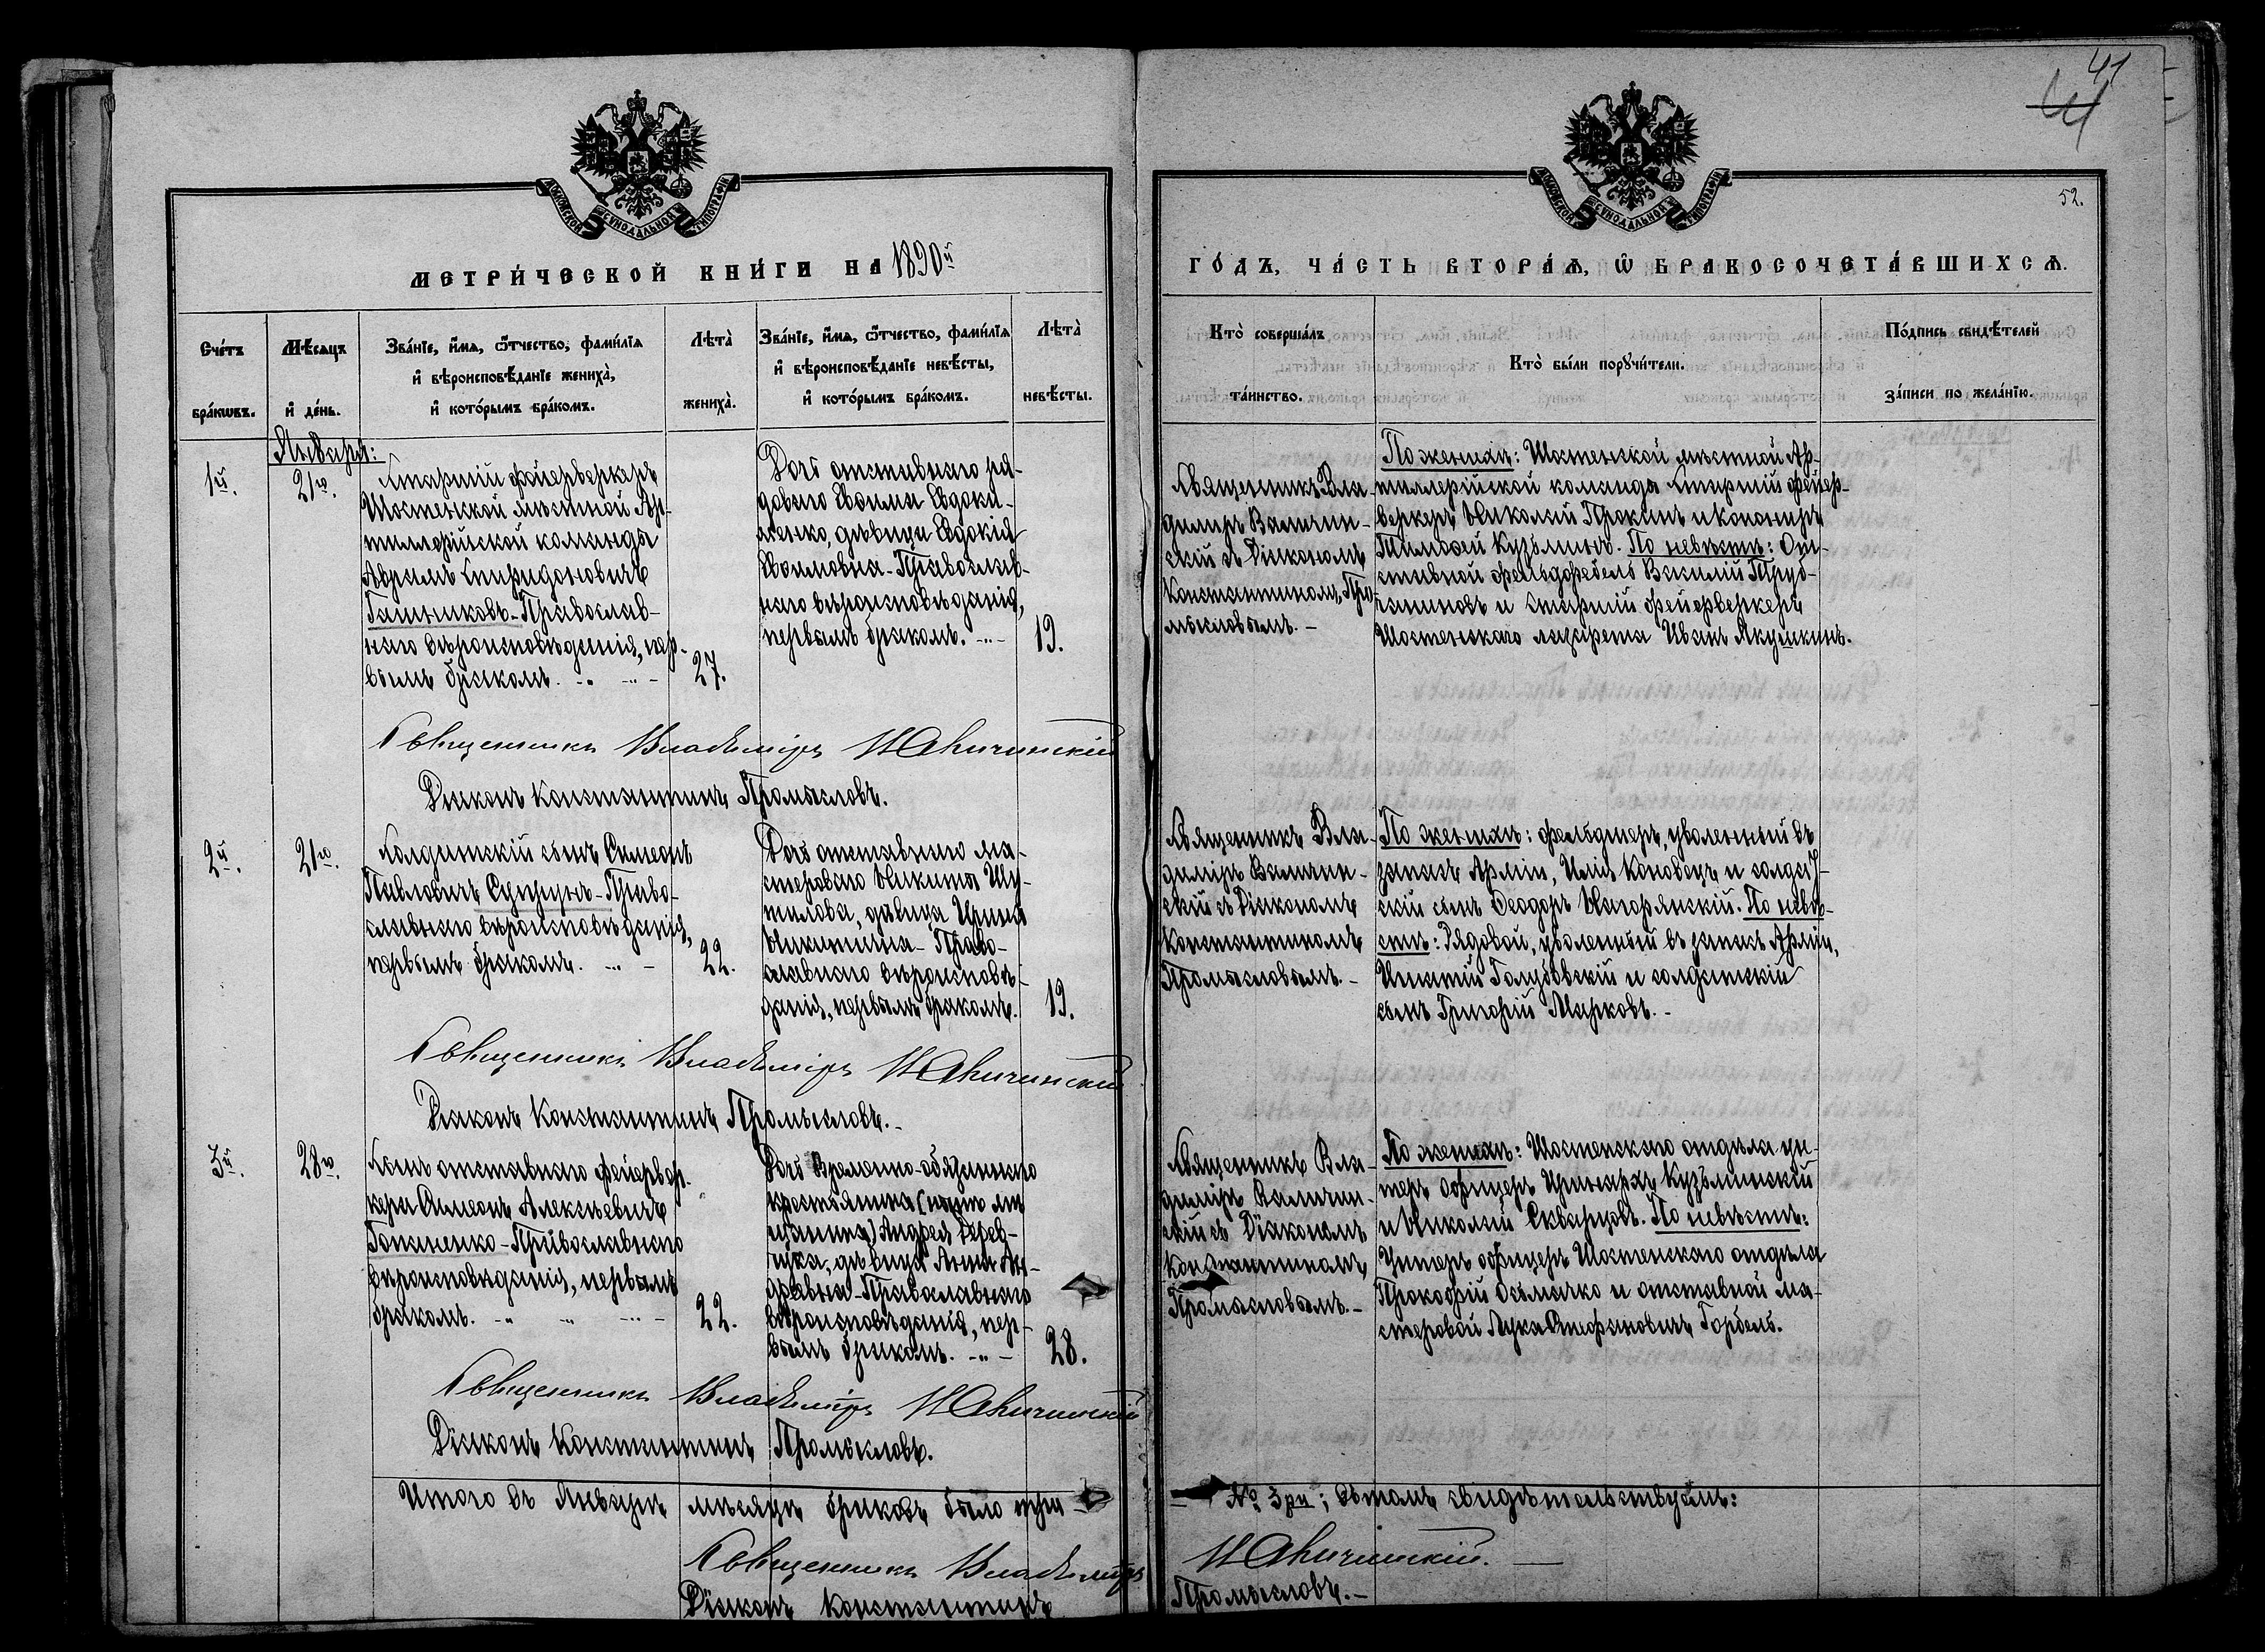 41
52.
МОСКОВСКОЙ СѴНОДАЛЬНОЙ ТИПОГРАФІИ
МОСКОВСКОЙ СѴНОДАЛЬНОЙ ТИПОГРАФІИ
МЕТРИ́ЧЕСКОЙ КНИ́ГИ НА 1890й
ГО́ДЪ, ЧА́СТЬ ВТОРА́Ѧ, Ѿ БРАКОСОЧЕТА́ВШИХСѦ.
Сче́тъ бра́кѡвъ.
Мѣ́сяцъ и҆ де́нь.
Зва́нїе, и҆́мѧ, ѻ҆́тчество, фами́лїѧ
и҆ вѣроисповѣ́данїе жениха̀,
и҆ кото́рымъ бра́комъ.
Лѣта̀ жениха̀.
Зва́нїе, и҆́мѧ, ѻ҆́тчество, фами́лїѧ
и҆ вѣроисповѣ́данїе невѣ́сты,
и҆ кото́рымъ бра́комъ.
Лѣта̀ невѣ́сты.
Кто̀ соверша́лъ та́инство.
Кто̀ бы́ли порꙋчи́тели.
По́дпись свидѣ́телей за́писи по жела́нїю.
Января:
1й.
21го.
Старшій фейерверкеръ
Шостенской мѣстной Ар-
тиллерійской команды
Аврамъ Спиридоновичъ
Православ-
наго вѣроисповѣданія, пер-
вымъ бракомъ.
27.
Дочь отставнаго ря-
доваго Евдоки-
менко, дѣвица Евдокія
Православ-
наго вѣроисповѣданія,
первымъ бракомъ.
19.
Священникъ Вла-
диміръ
скій съ Діакономъ
Константиномъ Про-
мысловымъ.
По женихѣ: Шостенской мѣстной Ар-
тиллерійской команды Старшій фейер-
веркеръ Николай и канониръ
Тимофей Кузьминъ. По невѣстѣ: От-
ставной фельдфебель Василій Труб-
чаниновъ и старшій фейерверкеръ
Шостенскаго лазарета Иванъ Якушкинъ.
Священникъ Владиміръ
Діаконъ Константинъ Промысловъ.
2й.
21го.
Солдатскій сынъ Симеонъ
Павловичъ Супрунъ - Право-
славнаго вѣроисповѣданія,
первымъ бракомъ.
22.
Дочь отставнаго ма-
стероваго Никиты Шу-
тилова, дѣвица Ирина
Никитина - Право-
славнаго вѣроисповѣ-
данія, первымъ бракомъ.
19.
Священникъ Вла-
диміръ
скій съ Діакономъ
Константиномъ
Промысловымъ.
По женихѣ: фельдшеръ, уволенный въ
запасъ Арміи, Илія Коновецъ и солдат-
скій сынъ Ѳеодоръ Нагорянскій. По невѣ-
стѣ: Рядовой, уволенный въ запасъ Арміи,
Игнатій Голубовскій и солдатскій
сынъ Григорій Марковъ.
Священникъ Владиміръ
Діаконъ Константинъ Промысловъ.
3й.
28го.
Сынъ отставнаго фейервер-
кера Симеонъ Алексѣевичъ
Гопаненко - Православнаго
вѣроисповѣданія, первымъ
бракомъ.
22.
Дочь временно-обязаннаго
крестьянина
Андрея Дерев-
дѣвица Анна Ан-
дреева - Православнаго
вѣроисповѣданія, пер-
вымъ бракомъ.
28.
Священникъ Вла-
диміръ
скій съ Діакономъ
Константиномъ
Промысловымъ.
По женихѣ: Шостенскаго отдѣла ун-
теръ офицеръ Иринархъ Кузьминскій
и Николай Скварцовъ. По невѣстѣ:
Унтеръ офицеръ Шостенскаго отдѣла
Прокофій Осьмачко и отставной ма-
стеровой Лука Стефановичъ Горбель.
Священникъ Владиміръ
Діаконъ Константинъ Промысловъ.
Итого въ Январѣ мѣсяцѣ браковъ было три - № 3ри; въ томъ свидѣтельствуемъ:
Священникъ Владиміръ
Діаконъ Константинъ Промысловъ.